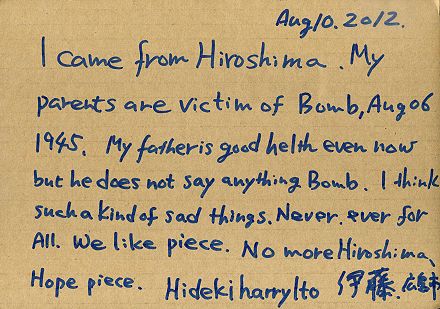 Aug 10. 2012.
I came from Hiroshima. My
parents are victim of Bomb, Aug 06
1945. My father is good helth even now
but he does not say anything Bomb. I think
such a kind of sad things. Never. ever for
All. We like piece. No more Hiroshima,
Hope piece. Hideki harry Ito 伊藤. 広島市